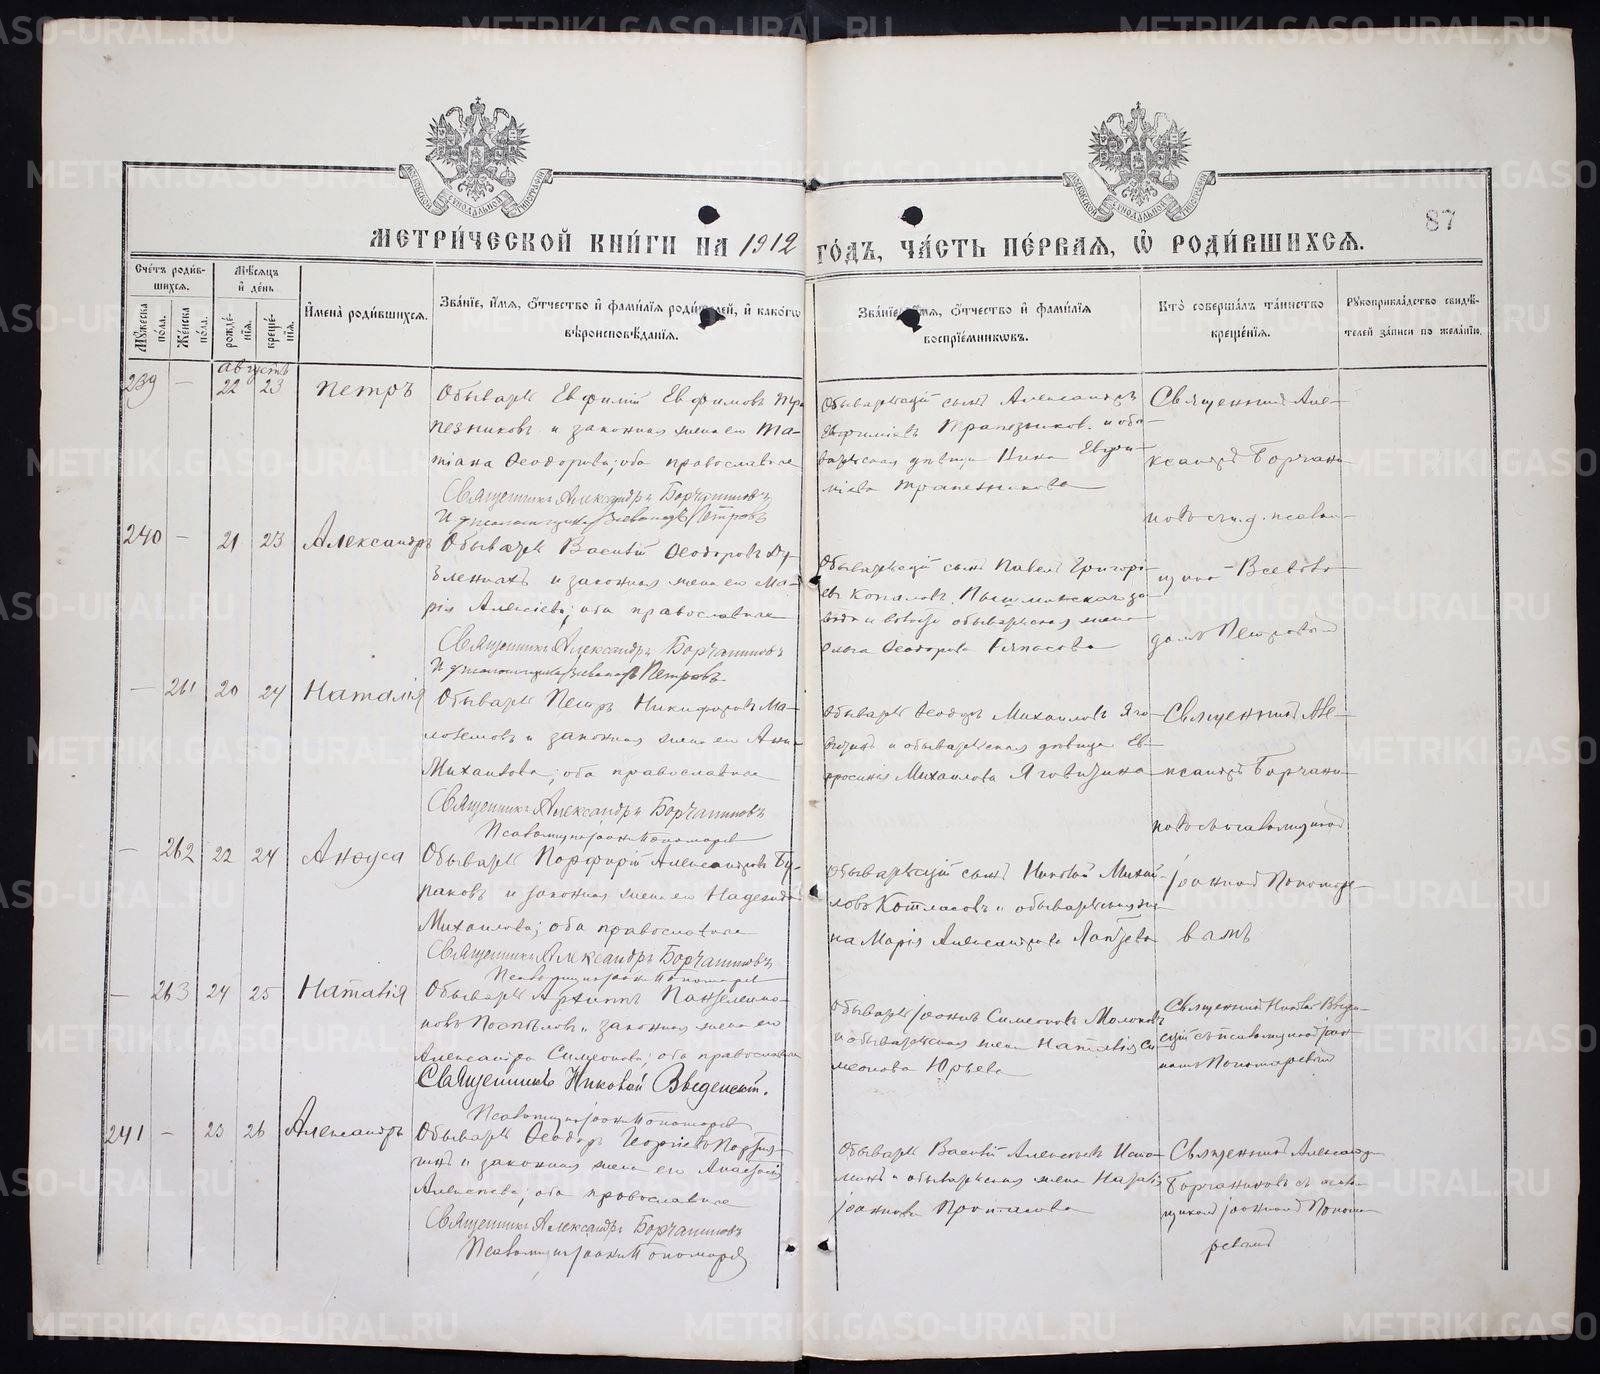 METRIKI.GASO-URAL.RU
87
МЕТРИ́ЧЕСКОЙ КНИ́ГИ НА 1912 ГО́ДЪ, ЧА́СТЬ ПЕ́РВАЯ, Ѡ҆ РОДИ́ВШИХСЯ.
Сче́тъ роди́в-
шихся.
Мꙋ́жеска по́ла.
Же́нска по́ла.
Мѣ́сяцъ
и҆ де́нь
рожде́-
нїя.
креще́-
нїя.
И҆мена̀ роди́вшихся.
Зва́нїе, и҆́мя, ѻ҆́тчество и҆ фами́лїя роди́телей, и҆ како́гѡ
вѣроисповѣ́данїя.
Зва́нїе, и҆́мя, ѻ҆́тчество и҆ фами́лїя
воспрїе́мникѡвъ.
Кто̀ соверша́лъ та́инство
креще́нїя.
Рꙋкоприкла́дство свидѣ́-
телей за́писи по жела́нїю.
Августъ
239 — 22 23 Петръ
Обыватель Евфимій Евфимовъ Тра
пезниковъ и законная жена его Та-
тіана Ѳеодорова; оба православные
Священникъ Александръ Борчаниновъ
Обывательскій сынъ Александръ
Евфиміевъ Трапезниковъ и обы-
вательская дѣвица Нина Евфи-
міева Трапезникова
Священникъ Але-
ксандръ Борчани
240 — 21 23 Александръ
Обыватель Василій Ѳеодоровъ
и законная жена его Ма-
рія Алексіева; оба православные
Священникъ Александръ Борчаниновъ
Обывательскій сынъ Павелъ Григорі-
евъ Копаловъ, Пышминскаго за-
вода и обывательская жена
Ольга Ѳеодорова
Всеволо-
домъ Петровымъ
— 261 20 24 Наталія
Обыватель Петръ Никифоровъ Ма-
и законная жена его Анна
Михаилова; оба православные
Священникъ Александръ Борчаниновъ
Псаломщикъ Іоаннъ Пономаревъ
Обыватель Ѳеодоръ Михаиловъ Яго-
и обывательская дѣвица Ев-
фросинія Михаилова
Священникъ Але-
ксандръ Борчани-
новъ съ псаломщикомъ
— 262 22 24 Анѳуса
Обыватель Порфирій Александровъ Бу-
раковъ и законная жена его Надежда
Михаилова; оба православные
Священникъ Александръ Борчаниновъ
Псаломщикъ Іоаннъ Пономаревъ
Обывательскій сынъ Николай Михай-
ловъ и обывательская же-
на Марія Александрова Лаптева
Іоанномъ Пономаре-
вымъ
— 263 24 25 Наталія
Обыватель Архиппъ Пантелеимо-
новъ Поспѣловъ и законная жена его
Александра Симеонова; оба православные
Священникъ Николай Введенскій.
Псаломщикъ Іоаннъ Пономаревъ
Обыватель Іоаннъ Симеоновъ
и обывательская жена Наталія Си-
меонова Юрьева
Священникъ Николай Введен-
скій съ псаломщикомъ Іоан-
номъ Пономаревымъ
241 — 25 26 Александръ
Обыватель Ѳеодоръ Георгіевъ
и законная жена его Анастасія
Алексіева; оба православные
Священникъ Александръ Борчаниновъ
Псаломщикъ Іоаннъ Пономаревъ
Обыватель Василій Алексіевъ
и обывательская жена
Іоаннова
Священникъ Александръ
Борчаниновъ съ псалом-
щикомъ Іоанномъ Понома-
ревымъ